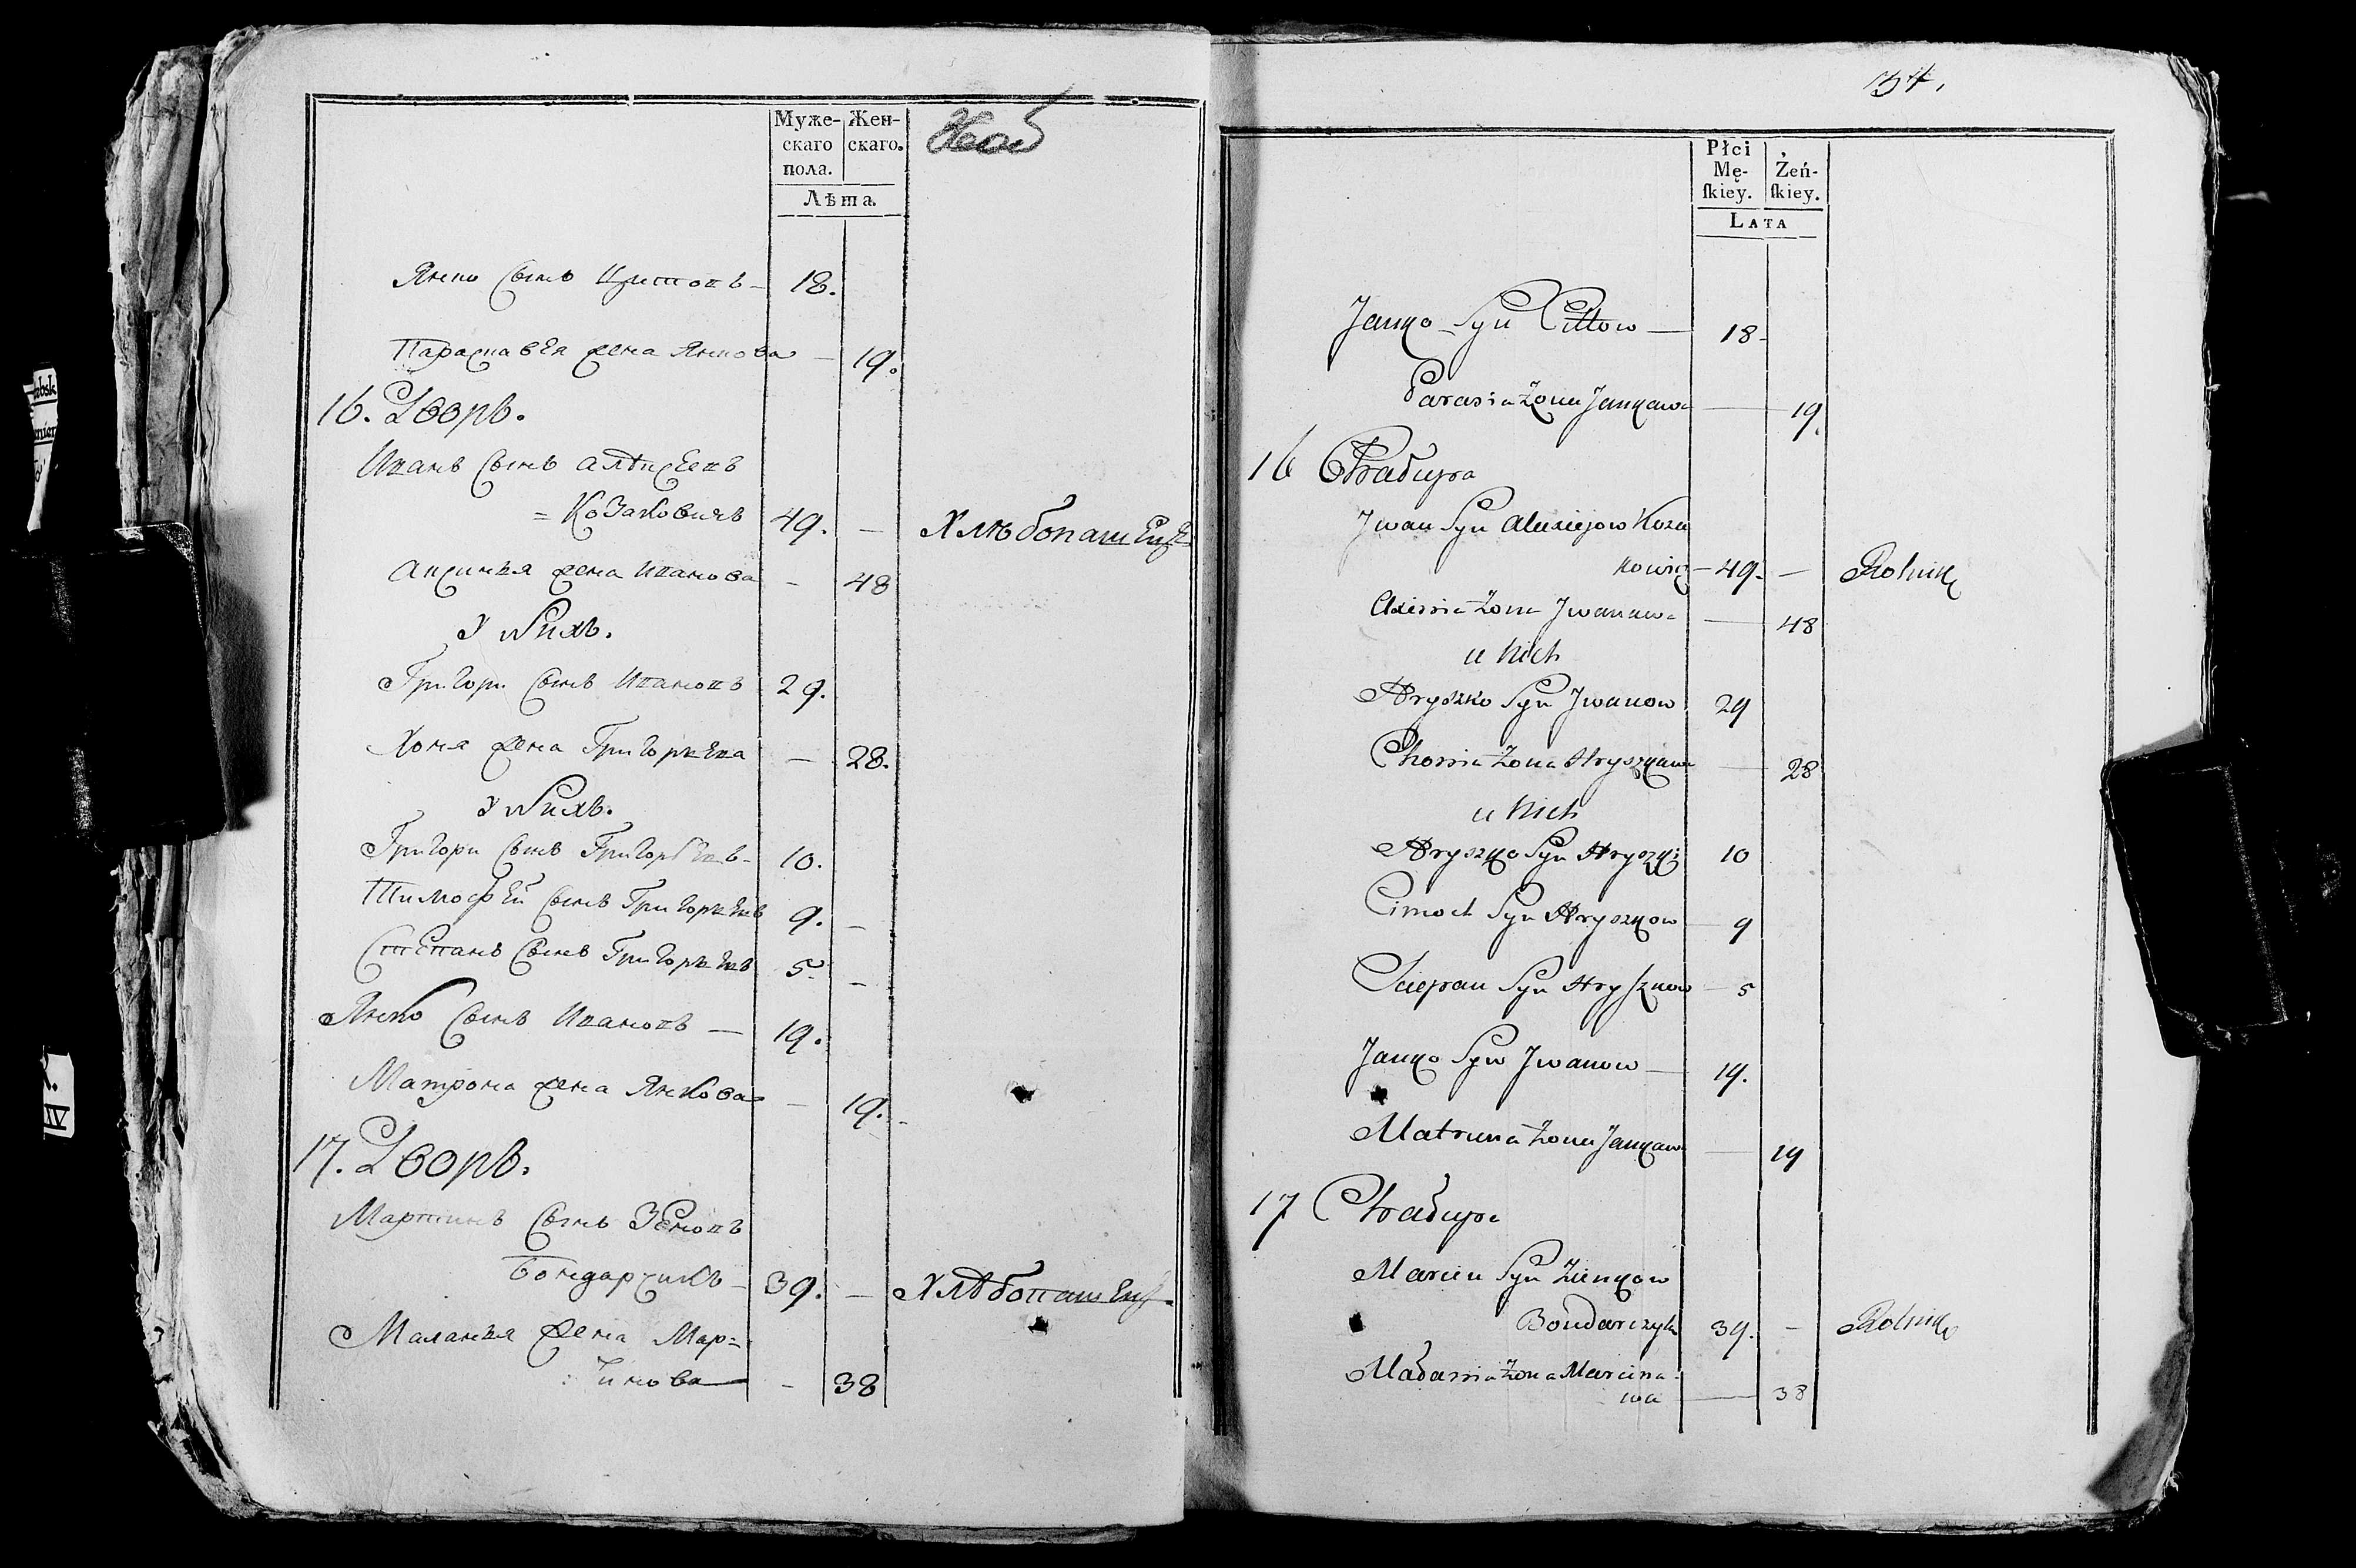 Муже-
скаго
пола.
Жен-
скаго.
Лѣта.
Янко Сынъ Цитовъ – 18.
Параскавѣя жена Янкова – 19.
16. Дворъ.
Иванъ Сынъ Алѣксеевъ
= Козаковичъ 49. – Хлѣбопашецъ
Аксинья жена Иванова – 48
У Nихъ.
Григори Сынъ Ивановъ 29.
Хомя жена Григорьева – 28.
У Nихъ.
Григори Сынъ Григорьевъ – 10.
Тимофей Сынъ Григорьевъ 9. –
Степанъ Сынъ Григорьевъ 5. –
Янко Сынъ Ивановъ – 19.
Матрона жена Янкова – 19.
17. Дворъ.
Мартинъ Сынъ Зенковъ
Бондарчикъ – 39. – Хлѣбопашецъ
Маланья жена Мар=
:тинова – 38
Płci
Mę-
ſkiey.
Żeń-
ſkiey.
LATA
Janko Syn Cittow – 18
Parasia Żona Jankawa – 19.
16
Jwan Syn Alexiejow Koza
kowicz – 49. – Rolnik
Axinia Żona Jwanawa – 48
u Nich
Hryszko Syn Jwanow 29
Chomia Żona Hryszkawa – 28
u Nich
Hryszko Syn Hryszk: 10
Cimoch Syn Hryszkow – 9
Sciepan Syn Hryszkow – 5
Janko Syn Jwanow – 19.
Matruna Żona Jankawa – 19
17
Marcin Syn Zienkow
Bondarczyk 39. – Rolnik
Małania Żona Marcina:
wa – 38